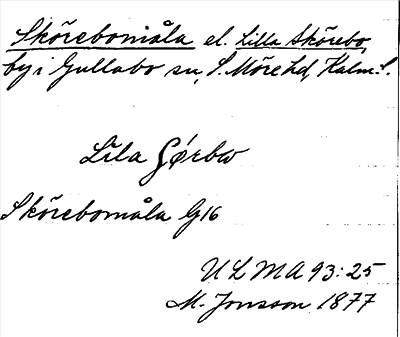 Skörebomåla el. Lilla Skörebo,
by i Gullabo sn, S. Möre hd, Kalm. l.
Lila
Skörebomåla G16
ULMA 93:25
M. Jonsson 1877